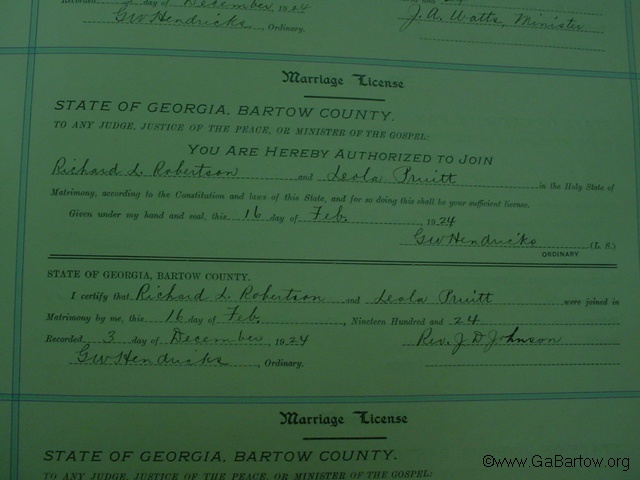 Recorded 3 day of December, 1924
GW Hendricks, Ordinary.
J. A. Watts, Minister
Marriage License
STATE OF GEORGIA, BARTOW COUNTY.
TO ANY JUDGE, JUSTICE OF THE PEACE, OR MINISTER OF THE GOSPEL:
YOU ARE HEREBY AUTHORIZED TO JOIN
Richard L. Robertson and Leola Pruitt in the Holy State of
Matrimony, according to the Constitution and laws of this State, and for so doing this shall be your sufficient license.
Given under my hand and seal, this 16 day of Feb. 1924
GW Hendricks (L. S.)
ORDINARY
STATE OF GEORGIA, BARTOW COUNTY.
I certify that Richard L. Robertson and Leola Pruitt were joined in
Matrimony by me, this 16 day of Feb., Nineteen Hundred and 24
Recorded 3 day of December, 1924 Rev. J D Johnson
GW Hendricks, Ordinary.
Marriage License
STATE OF GEORGIA, BARTOW COUNTY.
TO ANY JUDGE, JUSTICE OF THE PEACE, OR MINISTER OF THE GOSPEL:
©www.GaBartow.org